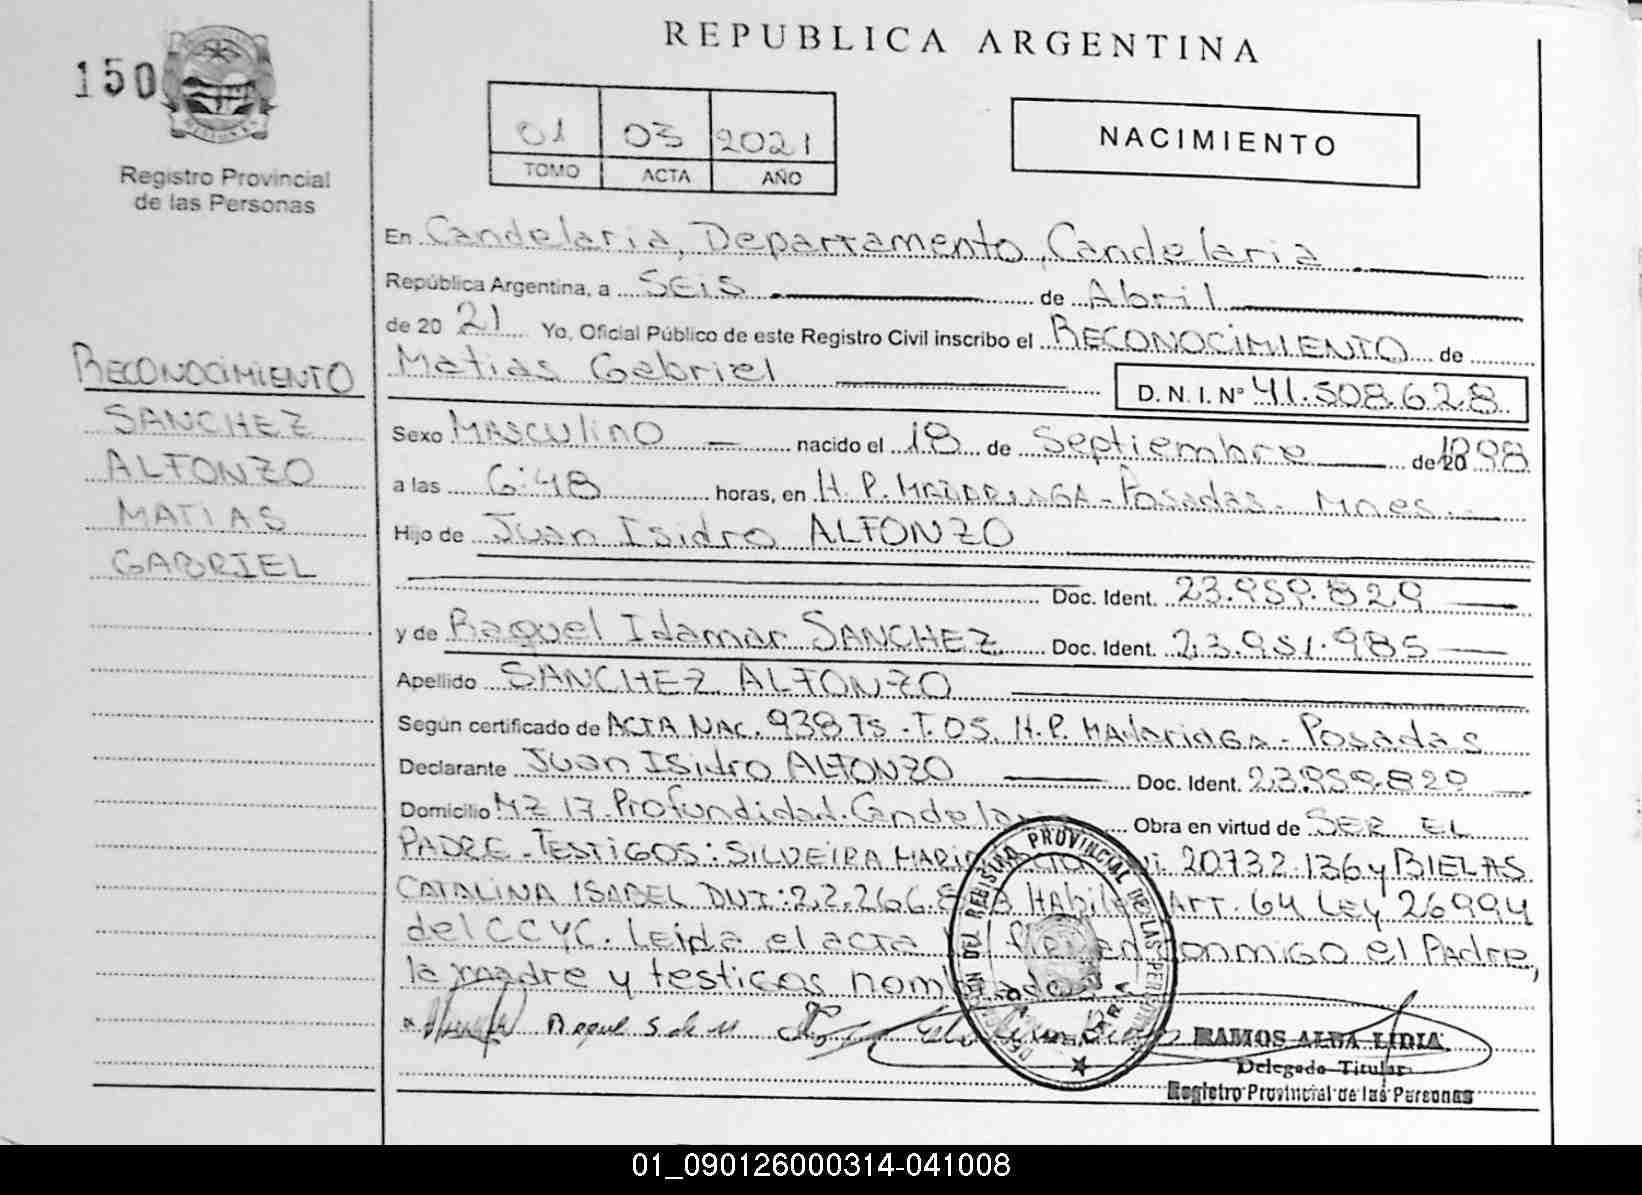 REPUBLICA ARGENTINA
150
MISIONES
Registro Provincial
de las Personas
01 03 2021
TOMO ACTA AÑO
NACIMIENTO
En Candelaria, Departamento, Candelaria
República Argentina, a SEIS de Abril
de 20 21 Yo, Oficial Público de este Registro Civil inscribo el RECONOCIMIENTO de
Matias Gabriel D. N. I. Nº 41.508.628
RECONOCIMIENTO
SANCHEZ
ALFONZO
MATIAS
GABRIEL
Sexo MASCULINO nacido el 18 de Septiembre de 1998
a las 6:48 horas, en H. P. MADARIAGA - Posadas. Mnes.
Hijo de Juan Isidro ALFONZO
Doc. Ident. 23.959.829
y de Raquel Idamar SANCHEZ Doc. Ident. 23.951.985
Apellido SANCHEZ ALFONZO
Según certificado de ACTA NAC. 938 TS - T. 05. H.P. MAdariaGA - Posadas
Declarante Juan ISidro ALFONZO Doc. Ident. 23.959.829
Domicilio MZ 17. Profundidad. Candela Obra en virtud de SER EL
PADRE - TESTIGOS: SILVEIRA 20732.136 y BIELAS
CATALINA ISABEL DNI: 22.266. Habil ART. 64 LEY 26994
del CCYC. Leida el acta conmigo el Padre,
la madre y testigos
DELEGACION DEL REGISTRO PROVINCIAL DE LAS PERSONAS
RAMOS ALBA LIDIA
Delegado Titular
Registro Provincial de las Personas
01_090126000314-041008